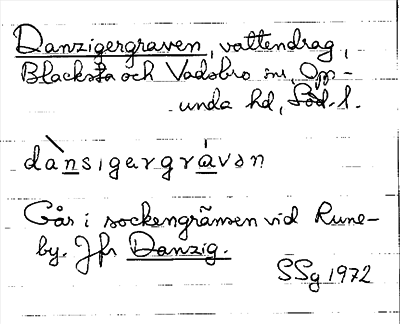 Danzigergraven, vattendrag,
Blacksta och Vadsbro snr, Opp-
unda hd, Söd. l.
dànsigərgrávən
Går i sockengränsen vid Rune-
by. Jfr Danzig.
SSg 1972